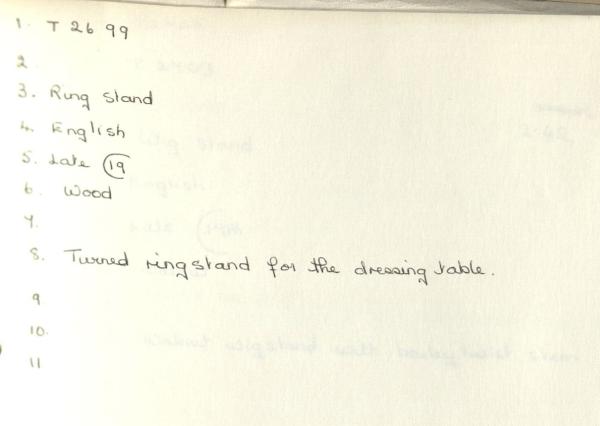 1. T 26 99
2.
3. Ring stand
4. English
5. Late 19
6. Wood
7.
8. Turned ringstand for the dressing table.
9
10.
11